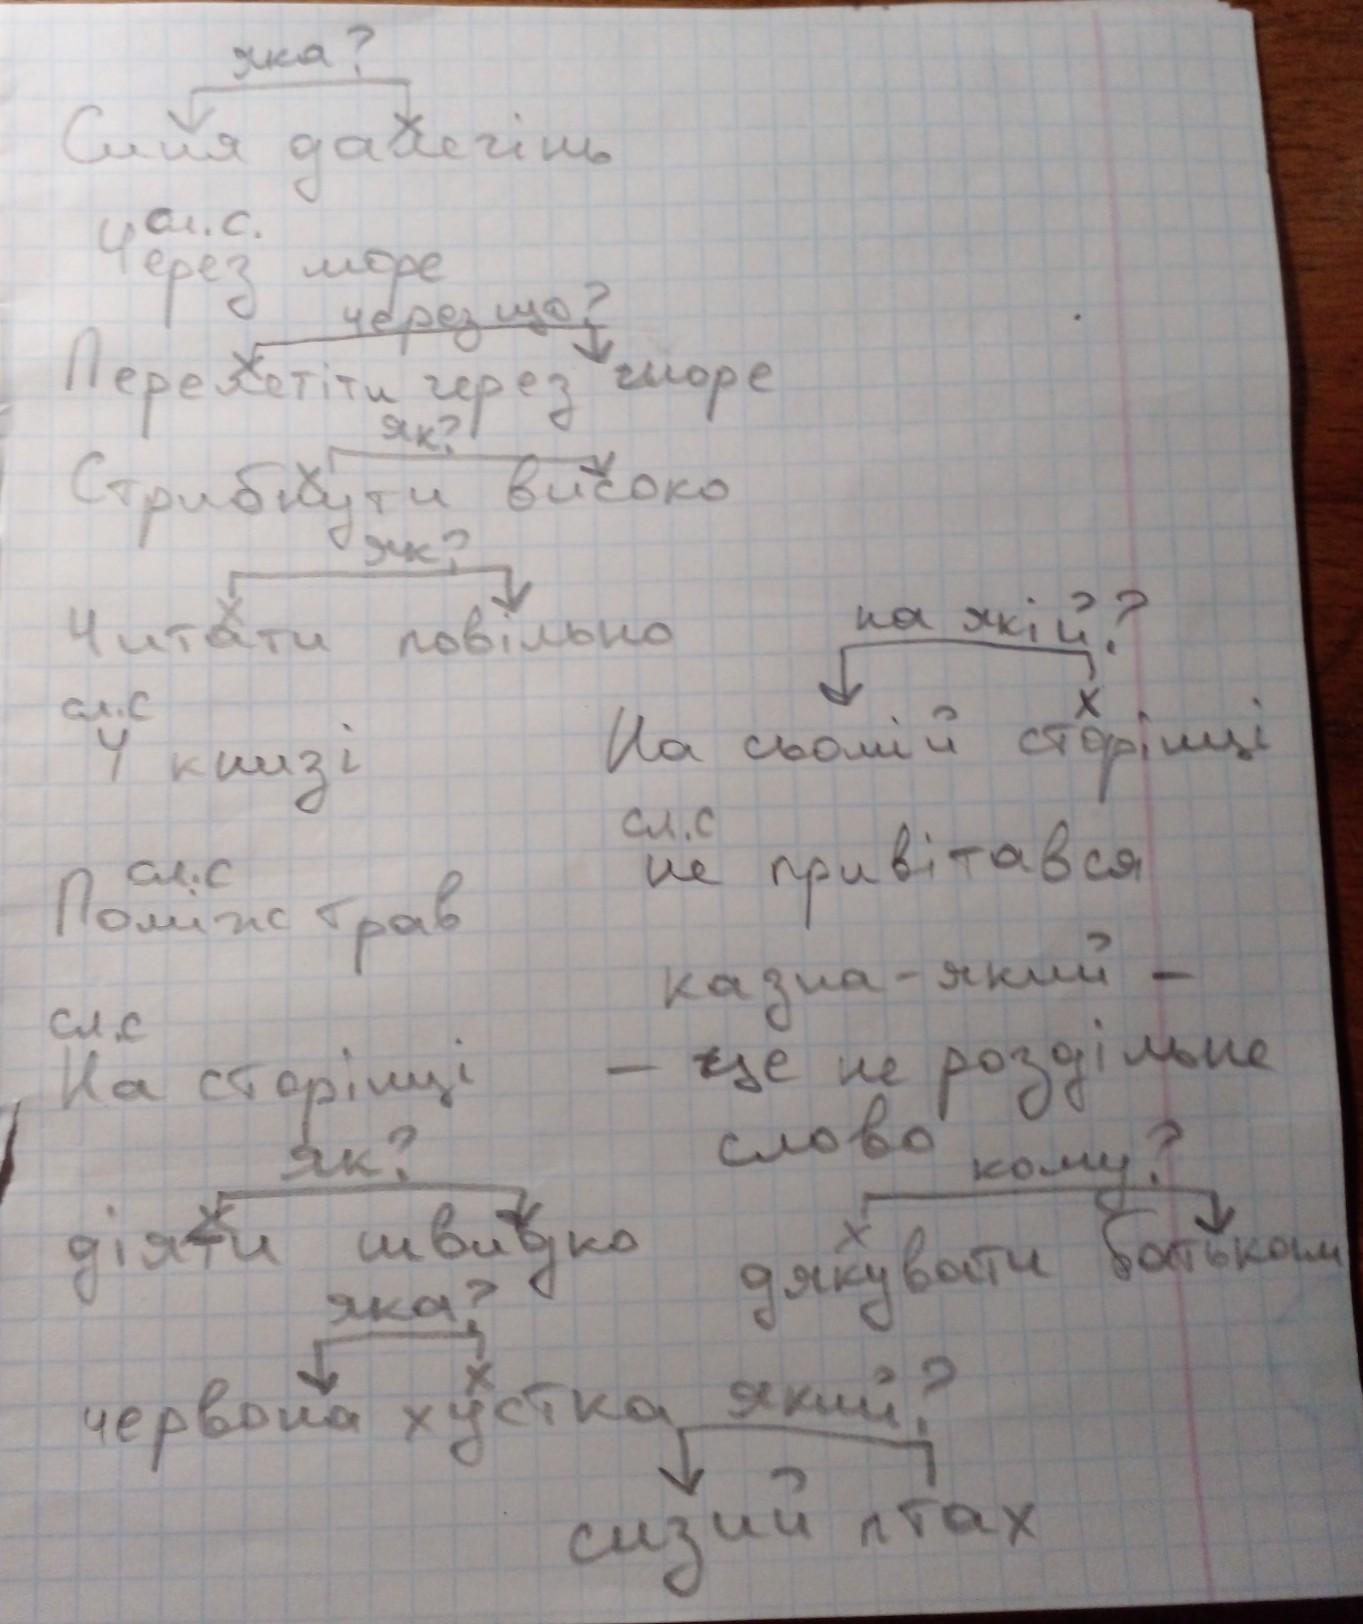 яка?
Синя далегінь
сл.с.
Через море
через що?
Перелетіти через море
як?
Стрибнути високо
як?
Читати повільно
сл.с
У книзі
сл.с
Поміж трав
сл.с
На сторінці
як?
діяти швидко
яка?
червона хустка
на якій?
На сьомій сторінці
сл.с
не привітався
казна-який –
– це не роздільне
слово
кому?
дякувати батькам
який?
сизий птах